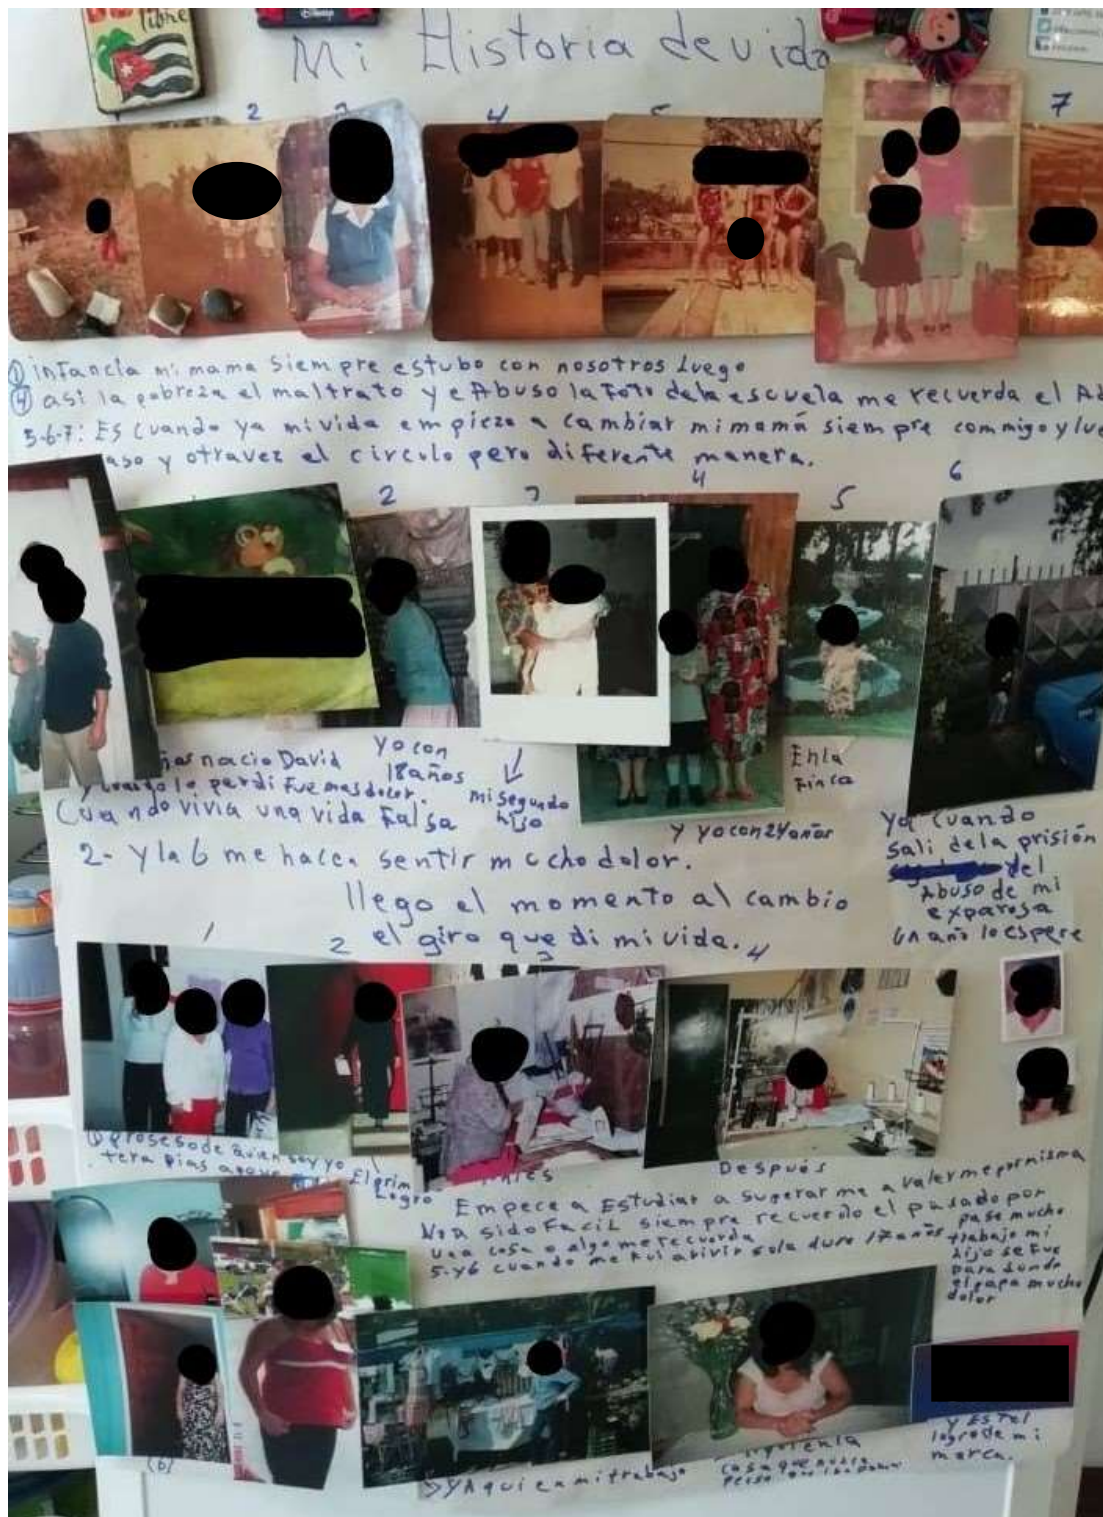 libre
Disney
Mi Historia de vida
2 3 4 5 7
① infancia mi mama siempre estubo con nosotros luego
④ asi la pobreza el maltrato y e Abuso la foto dela escuela me recuerda el
5-6-7: Es cuando ya mi vida empieza a cambiar mi mamá siempre commigo y
y otravez el circulo pero diferente manera.
2 3 4 5 6
nacio David
y luego lo perdi Fue mas dolor.
Cuando vivia una vida Falsa
yo con
18 años
mi segundo
hijo
y yo con 24 años
En la
Finca
ya cuando
sali dela prisión
del
Abuso de mi
exparosa
un año lo espere
2- y la 6 me hacen sentir mucho dolor.
llego el momento al cambio
el giro que di mi vida.
1 2 3 4
① proseso de quien soy yo
terapias
El prim
Logro
Antes
Después
Empece a Estudiar a superarme a valerme por misma
No a sido Facil siempre recuerdo el pasado por
una cosa o algo me recuerda
5-y6 cuando me fui a bivir sola dure 17 años
pase mucho
trabajo mi
hijo se fue
para donde
el papa mucho
dolor
(6)
y Aqui en mi trabajo
cosa que nunca
y Es tel
logro de mi
marca.